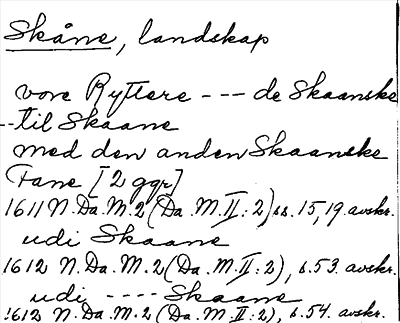 Skåne, landskap
vore Ryttere --- de Skaanske
--til Skaane
med den anden Skaanske
Fane [2 ggr]
1611 N. Da. M. 2 (Da. M. II: 2) ss. 15, 19. avskr.
udi Skaane
1612 N. Da. M. 2 (Da. M. II: 2), s. 53. avskr.
udi ---- Skaane
1612 N. Da. M. 2 (Da. M. II: 2), s. 54. avskr.